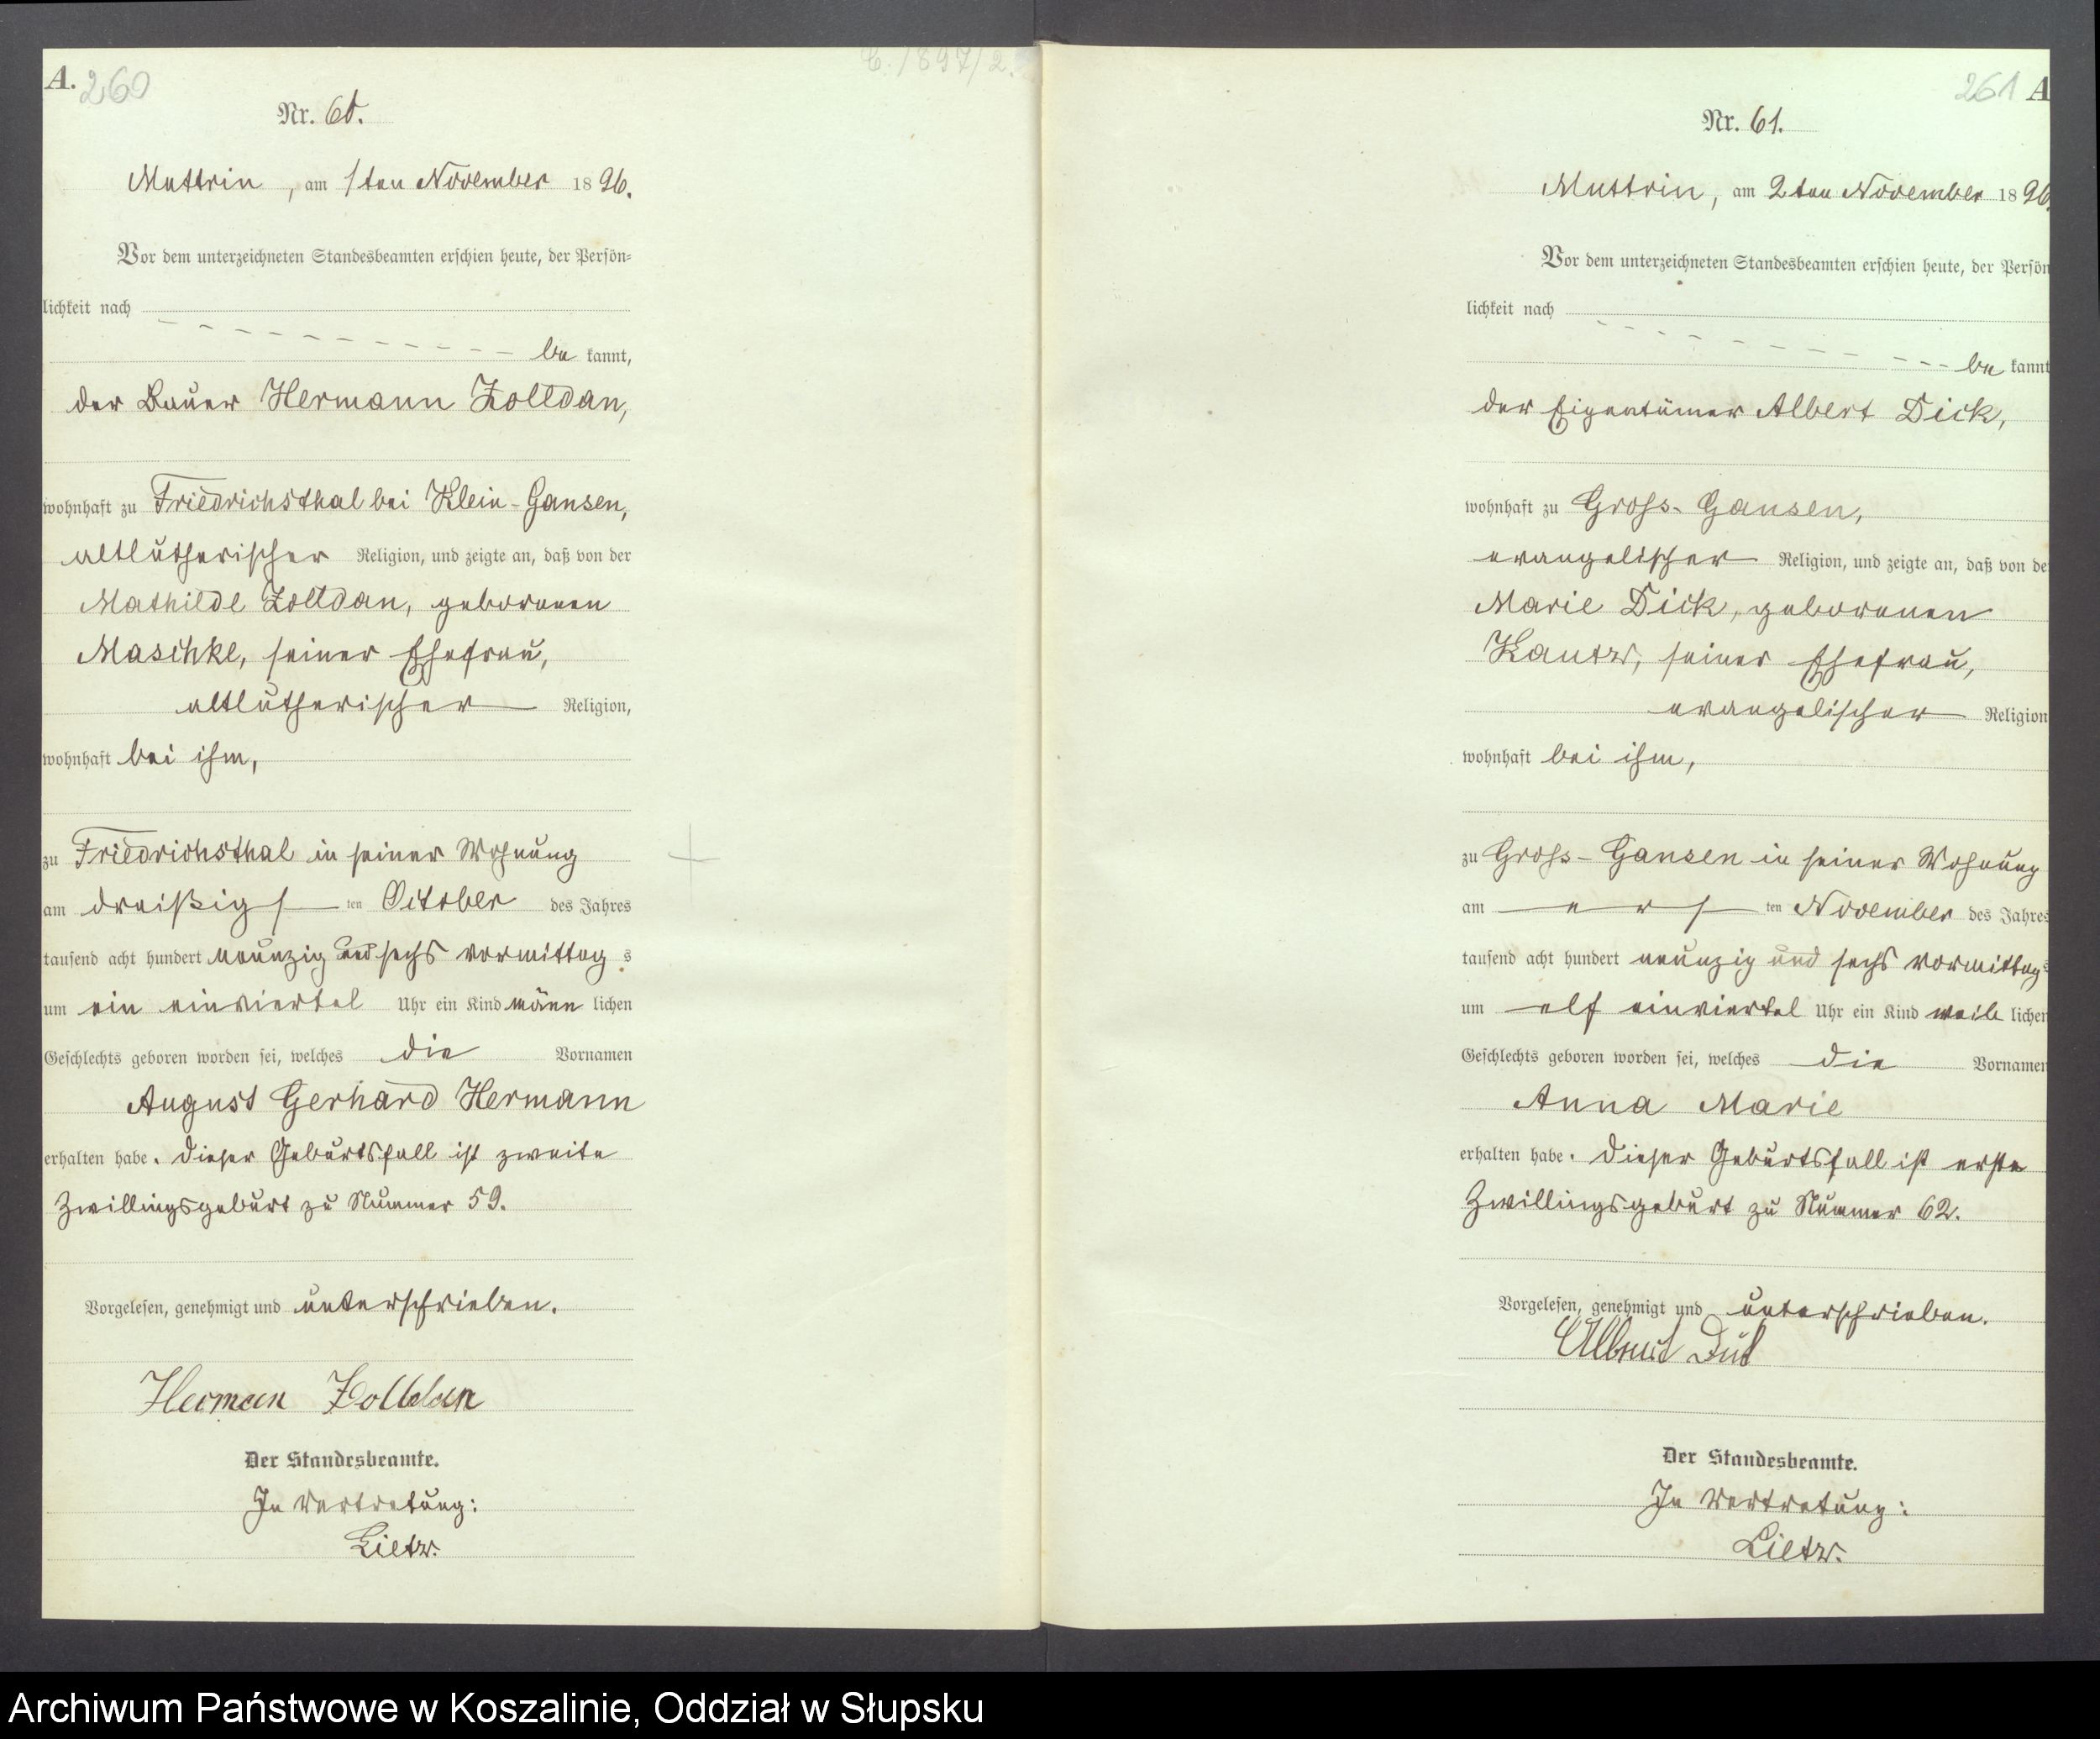 A. 260
Nr. 60.
Muttrin, am 1ten November 1896.
Vor dem unterzeichneten Standesbeamten erschien heute, der Persön-
lichkeit nach
be kannt,
der Bauer Hermann Zolldan,
wohnhaft zu Friedrichsthal bei Klein-Gansen,
altlutherischer Religion, und zeigte an, daß von der
Mathilde Zolldan, geborenen
Maschke, seiner Ehefrau,
altlutherischer Religion,
wohnhaft bei ihm,
zu Friedrichsthal in seiner Wohnung
am dreißigs ten October des Jahres
tausend acht hundert neunzig und sechs vormittag s
um ein einviertel Uhr ein Kind männ lichen
Geschlechts geboren worden sei, welches die Vornamen
August Gerhard Hermann
erhalten habe. Dieser Geburtsfall ist zweite
Zwillingsgeburt zu Nummer 59.
Vorgelesen, genehmigt und unterschrieben.
Herman Zolldan
Der Standesbeamte.
In Vertretung:
Lietz.
261 A
Nr. 61.
Muttrin, am 2ten November 1896.
Vor dem unterzeichneten Standesbeamten erschien heute, der Persön
lichkeit nach
be kannt
der Eigentümer Albert Dick,
wohnhaft zu Gross-Gansen,
evangelischer Religion, und zeigte an, daß von de
Marie Dick, geborenen
Kautz, seiner Ehefrau,
evangelischer Religion
wohnhaft bei ihm,
zu Gross-Gansen in seiner Wohnung
am ers ten November des Jahres
tausend acht hundert neunzig und sechs vormittag s
um elf einviertel Uhr ein Kind weib lichen
Geschlechts geboren worden sei, welches die Vornamen
Anna Marie
erhalten habe. Dieser Geburtsfall ist erste
Zwillingsgeburt zu Nummer 62.
Vorgelesen, genehmigt und unterschrieben.
Albert Dick
Der Standesbeamte.
In Vertretung:
Lietz.
Archiwum Państwowe w Koszalinie, Oddział w Słupsku